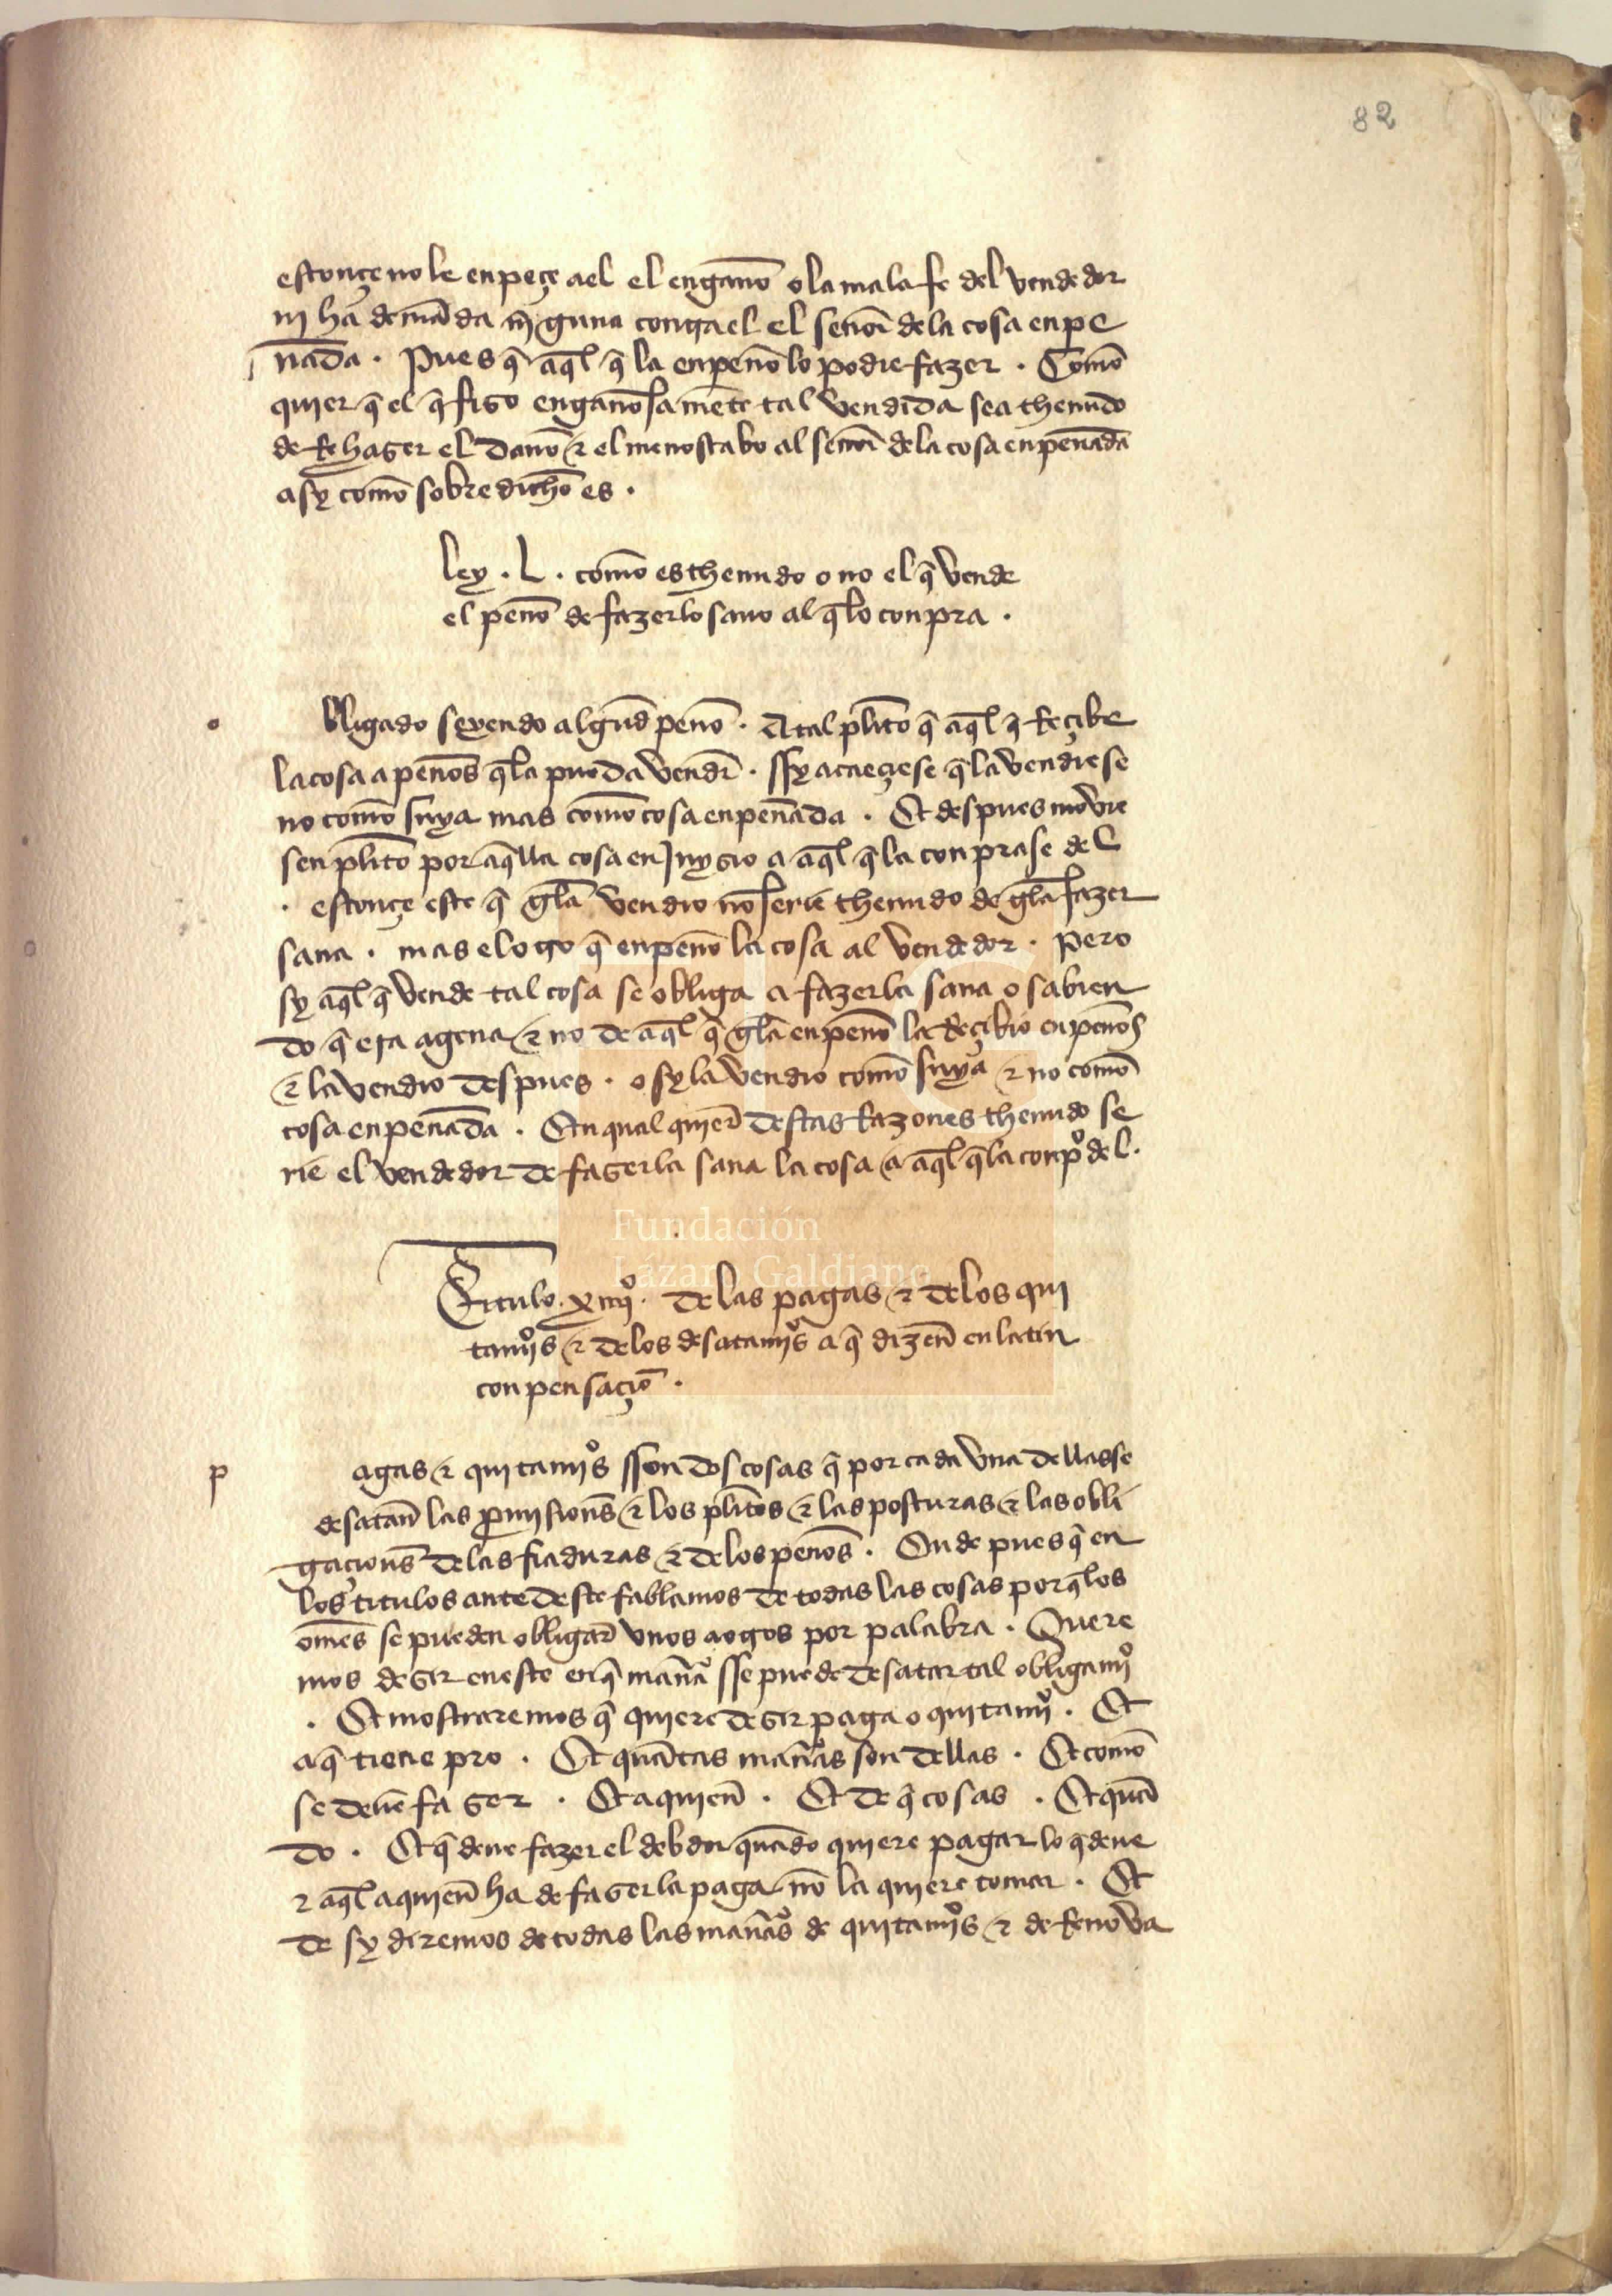 82
estonçe no le enpeçe a el el engan̄o o la mala fe del vendedor
nj ha demāda njnguna contra el el sen̄or de la cosa enpe
n̄ada . Pues q̄ aq̄l q̄ la enpen̄o lo podie fazer . Comō
quier q̄ el q̄ fizo engan̄osa mēte tal vendida sea thenudo
de Rehazer el dan̄o & el menoscabo al sen̄or de la cosa enpen̄ada
asy comō sobre dicho es .
ley . L . comō es thenudo o no el q̄ vende
el pen̄o de fazerlo sano al q̄ lo conpra .
o
bligado seyendo algūd pen̄o . A tal pleito q̄ aq̄l q̄ Reçibe
la cosa a pen̄os q̄ la pueda vendr̄ . ssy acaeçiese q̄ la vendiese
no comō suya mas comō cosa enpen̄ada . Et despues movie
sen plito por aq̄lla cosa en Juyzio a aq̄l q̄ la conprase del
. estonçe este q̄ gela vendio no serie thenudo de gela fazer
sana . mas el otro q̄ enpen̄o la cosa al vendedor . Pero
sy aq̄l q̄ vende tal cosa se obliga a fazerla sana o sabien
do q̄ era agena & no de aq̄l q̄ gela enpen̄o la Reçibio en pen̄os
& la vendio despues . o sy la vendio comō suya & no comō
cosa enpen̄ada . En qual quier destas Razones thenudo se
rie el vendedor de fazerla sana la cosa a aq̄l q̄ la conpº del .
Fundación
Lázaro Galdiano
Titulo . xiiijº . de las pagas & de los qui
tamjºs & de los desatamjºs a q̄ dizen̄ en latin
conpensaçiō .
p
agas & quitamjºs sson dos cosas q̄ por cada vna dellas se
desatan̄ las promisiones & los plitos & las posturas & las obli
gaçiones de las fiaduras & de los pen̄os . Onde pues q̄ en
los titulos ante deste fablamos de todas las cosas por q̄ los
omēs se pueden obligar vnos a otros por palabra . Quere
mos dezir en este en q̄ man̄a sse puede desatar tal obligamjº
. Et mostraremos q̄ quiere dezir paga o quitamjº . Et
a q̄ tiene pro . Et quātas man̄as son dellas . Et comō
se deuē fazer . Et a quien̄ . Et de q̄ cosas . Et quā
do . Et q̄ deue fazer el debdor quādo quiere pagar lo q̄ deue
& aq̄l a quien̄ ha de fazer la paga nō la quiere tomar . Et
de sy diremos de todas las man̄as de quitamjºs & de Renova